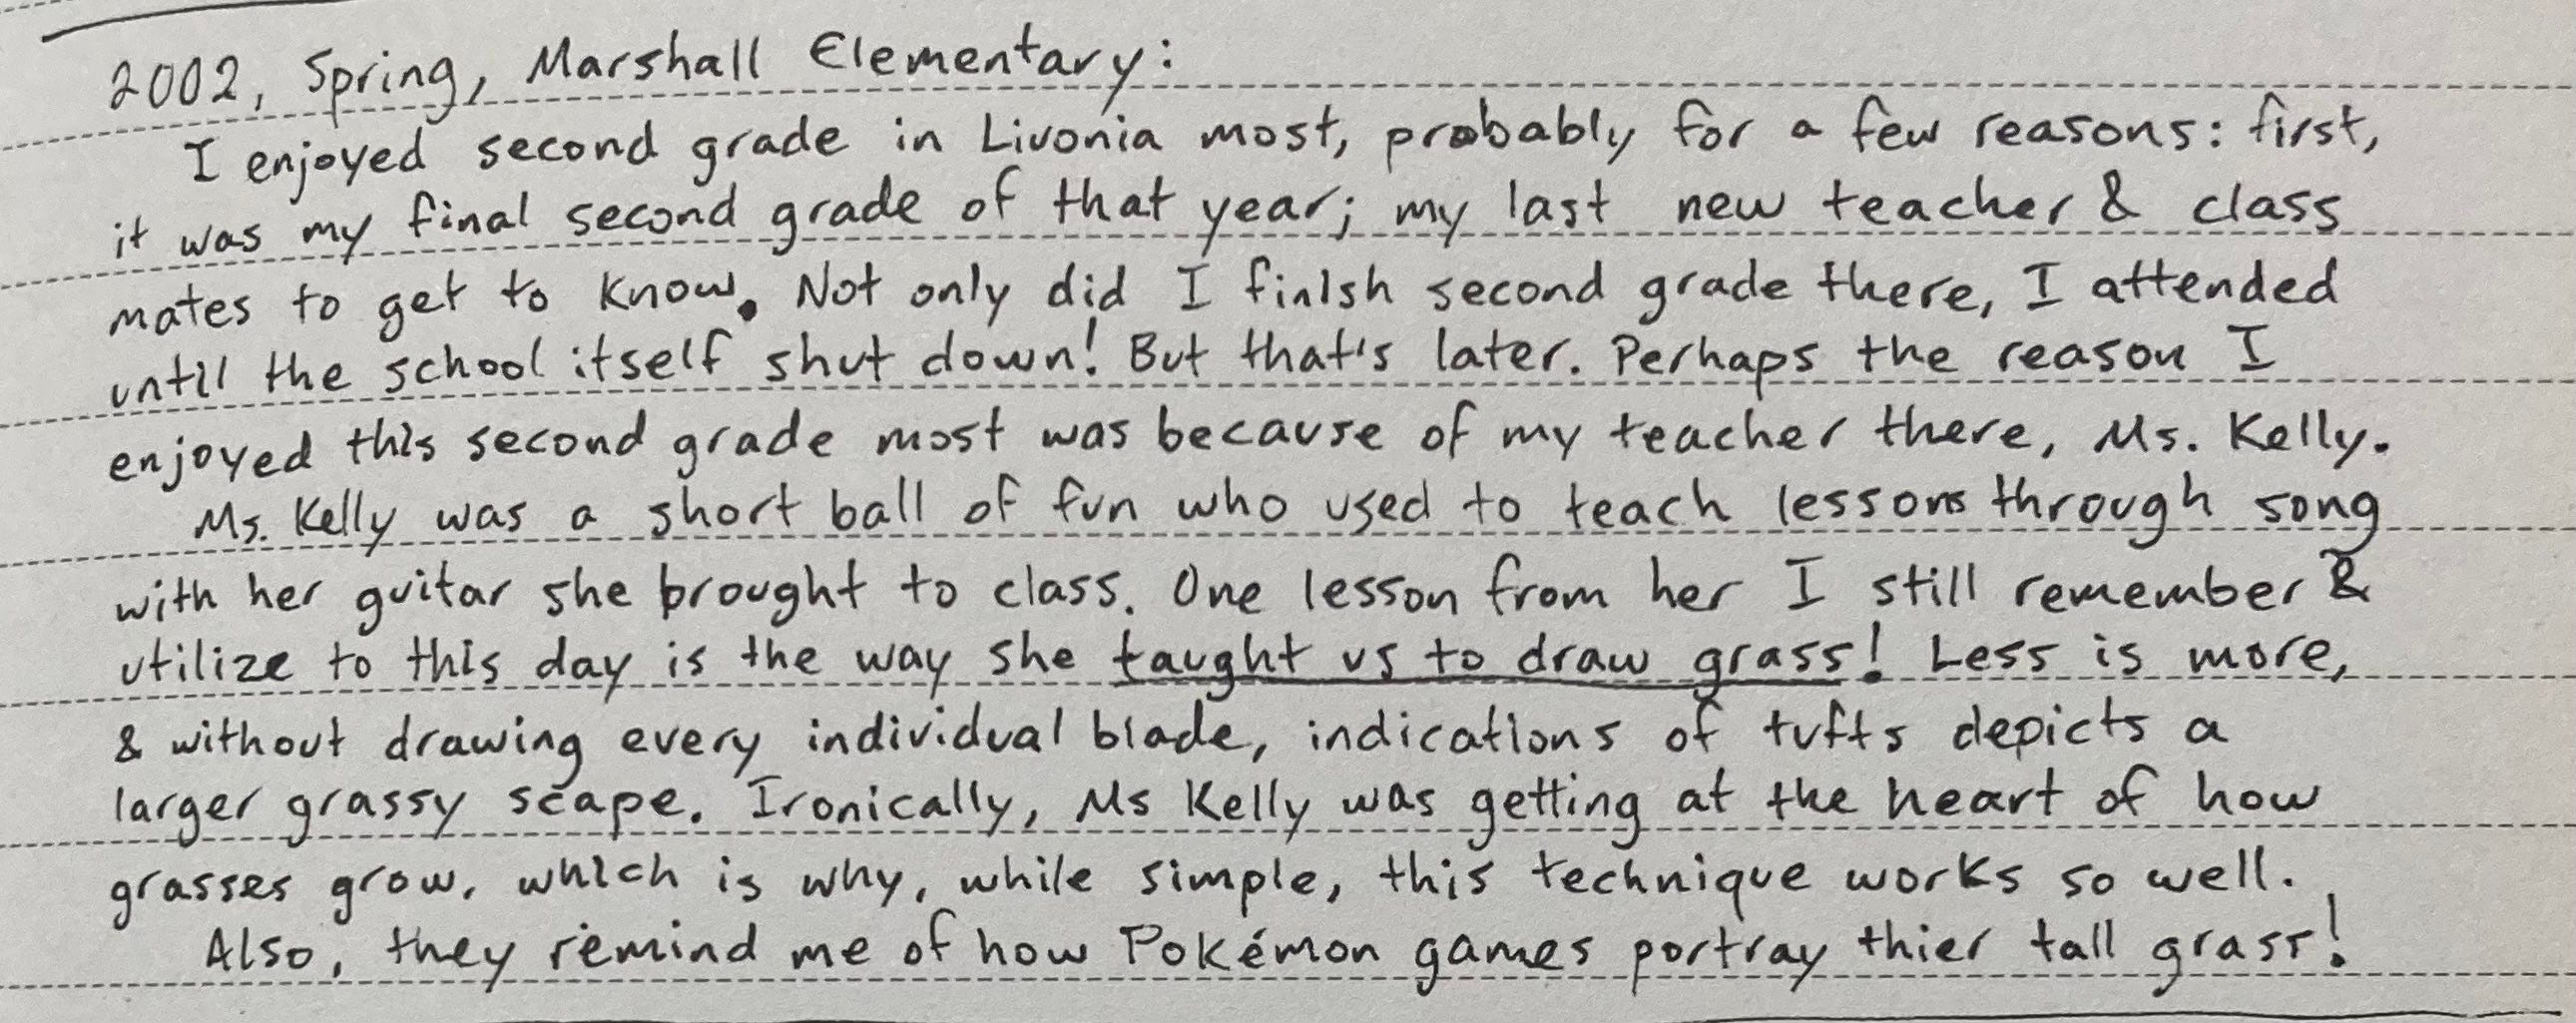 2002, Spring, Marshall Elementary:
I enjoyed second grade in Livonia most, probably for a few reasons: first,
it was my final second grade of that year; my last new teacher & class
mates to get to know. Not only did I finish second grade there, I attended
until the school itself shut down! But that's later. Perhaps the reason I
enjoyed this second grade most was because of my teacher there, Ms. Kelly.
Ms. Kelly was a short ball of fun who used to teach lessons through song
with her guitar she brought to class. One lesson from her I still remember &
utilize to this day is the way she taught us to draw grass! Less is more,
& without drawing every individual blade, indications of tufts depicts a
larger grassy scape. Ironically, Ms Kelly was getting at the heart of how
grasses grow, which is why, while simple, this technique works so well.
Also, they remind me of how Pokémon games portray thier tall grass!